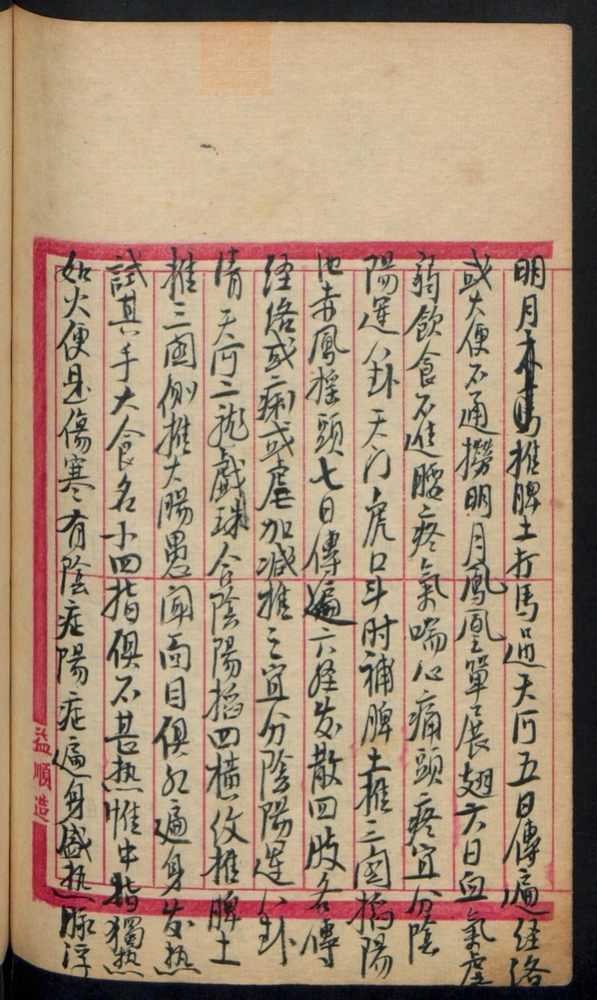 明月 推脾土打馬過天河五日傳遍经络
或大便不通撈明月鳳凰單展翅六日血氣虚
弱飲食不進腰疼氣喘心痛頭疼宜分陰
陽運八卦天门虎口斗肘補脾土推三関掐陽
池赤鳳摇頭七日傳遍六经发散四肢各傳
经络或痢或虐加减推之宜分陰陽運八卦
清天河二龙戲珠合陰陽掐四横纹推脾土
推三関側推大腸愚闻面目俱红遍身发热
試其手大食名小四指俱不甚热惟中指獨热
如火便是傷寒有陰症陽症遍身盛热脉浮
益順造